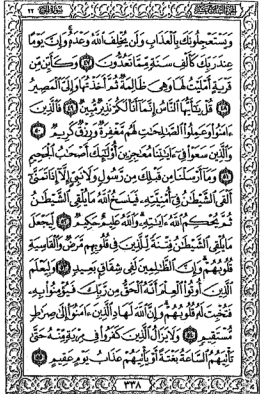 وَيَسْتَعْجِلُونَكَ بِالْعَذَابِ وَلَن يُخْلِفَ اللَّهُ وَعْدَهُ وَإِنَّ يَوْمًا
عِندَ رَبِّكَ كَأَلْفِ سَنَةٍ مِّمَّا تَعُدُّونَ ٤٧ وَكَأَيِّن مِّن
قَرْيَةٍ أَمْلَيْتُ لَهَا وَهِيَ ظَالِمَةٌ ثُمَّ أَخَذْتُهَا وَإِلَيَّ الْمَصِيرُ
٤٨ قُلْ يَا أَيُّهَا النَّاسُ إِنَّمَا أَنَا لَكُمْ نَذِيرٌ مُّبِينٌ ٤٩ فَالَّذِينَ
ءَامَنُوا وَعَمِلُوا الصَّالِحَاتِ لَهُم مَّغْفِرَةٌ وَرِزْقٌ كَرِيمٌ ٥٠
وَالَّذِينَ سَعَوْا فِي ءَايَاتِنَا مُعَاجِزِينَ أُولَئِكَ أَصْحَابُ الْجَحِيمِ
٥١ وَمَا أَرْسَلْنَا مِن قَبْلِكَ مِن رَّسُولٍ وَلَا نَبِيٍّ إِلَّا إِذَا تَمَنَّى
أَلْقَى الشَّيْطَانُ فِي أُمْنِيَّتِهِ فَيَنسَخُ اللَّهُ مَا يُلْقِي الشَّيْطَانُ
ثُمَّ يُحْكِمُ اللَّهُ ءَايَاتِهِ وَاللَّهُ عَلِيمٌ حَكِيمٌ ٥٢ لِّيَجْعَلَ
مَا يُلْقِي الشَّيْطَانُ فِتْنَةً لِّلَّذِينَ فِي قُلُوبِهِم مَّرَضٌ وَالْقَاسِيَةِ
قُلُوبُهُمْ وَإِنَّ الظَّالِمِينَ لَفِي شِقَاقٍ بَعِيدٍ ٥٣ وَلِيَعْلَمَ
الَّذِينَ أُوتُوا الْعِلْمَ أَنَّهُ الْحَقُّ مِن رَّبِّكَ فَيُؤْمِنُوا بِهِ
فَتُخْبِتَ لَهُ قُلُوبُهُمْ وَإِنَّ اللَّهَ لَهَادِ الَّذِينَ ءَامَنُوا إِلَى صِرَاطٍ
مُّسْتَقِيمٍ ٥٤ وَلَا يَزَالُ الَّذِينَ كَفَرُوا فِي مِرْيَةٍ مِّنْهُ حَتَّى
تَأْتِيَهُمُ السَّاعَةُ بَغْتَةً أَوْ يَأْتِيَهُمْ عَذَابُ يَوْمٍ عَقِيمٍ ٥٥
٣٣٨